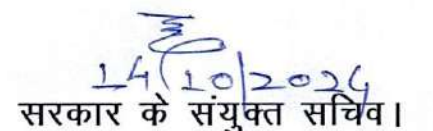 14/10/2024
सरकार के संयुक्त सचिव।